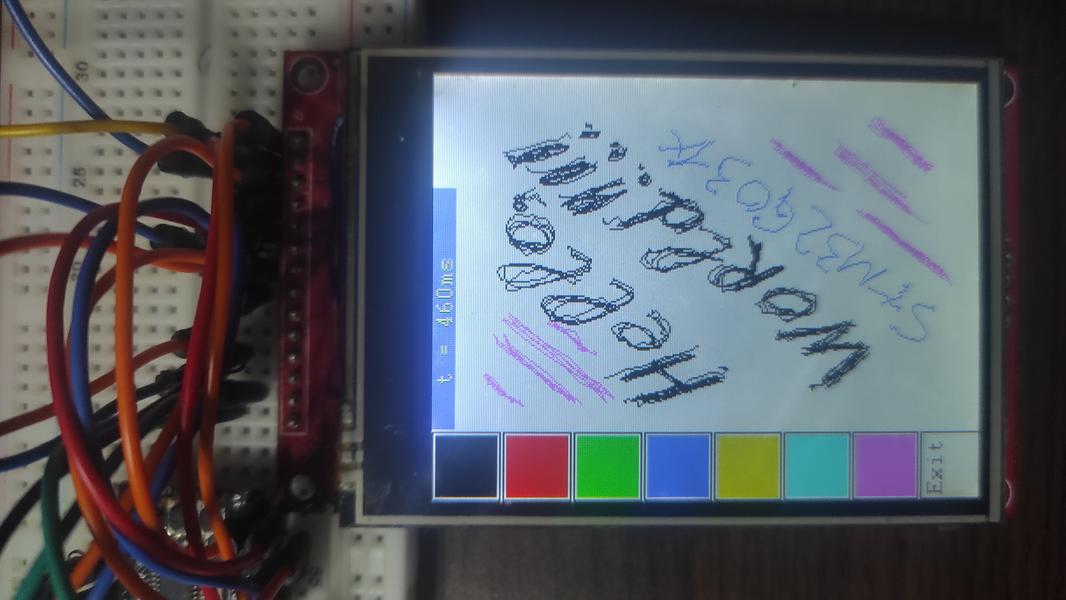 20 25 30
t = 460ms
Hello,
World!!!!
STM32G031K
Exit